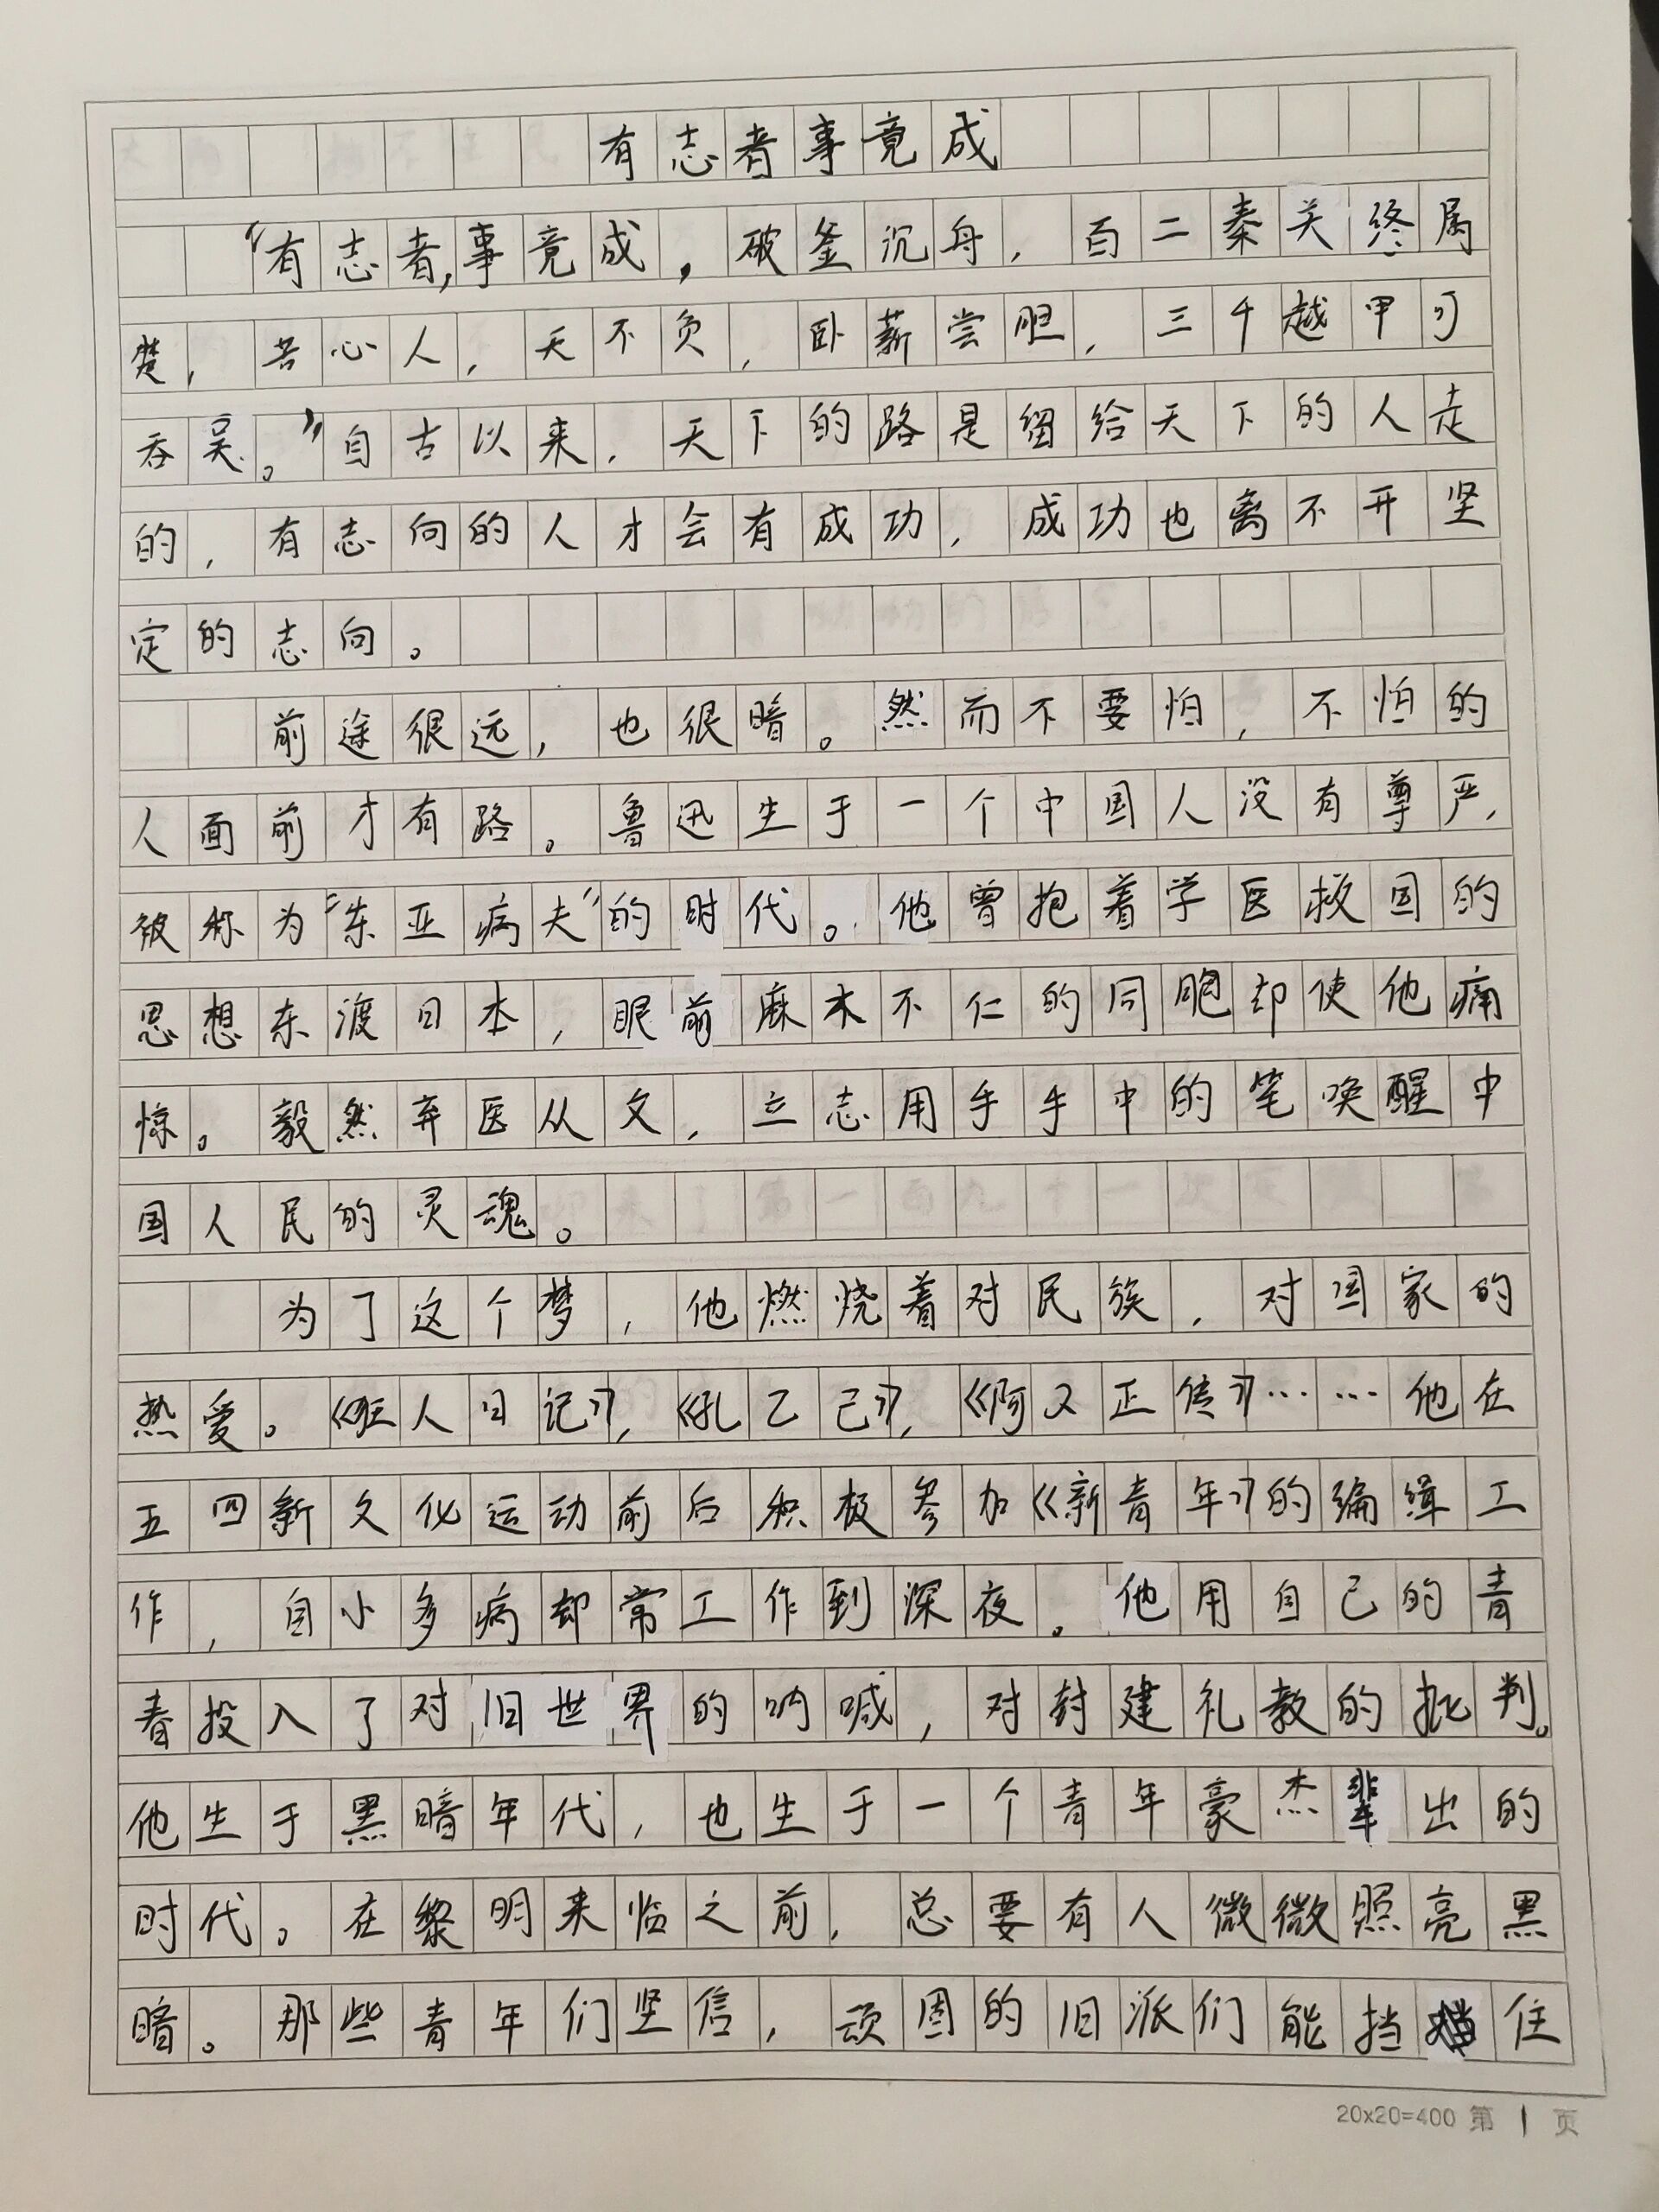 有志者事竟成
“有志者,事竟成,破釜沉舟,百二秦关终属
楚,苦心人,天不负,卧薪尝胆,三千越甲可
吞吴。”自古以来,天下的路是留给天下的人走
的,有志向的人才会有成功,成功也离不开坚
定的志向。
前途很远,也很暗。然而不要怕,不怕的
人面前才有路。鲁迅生于一个中国人没有尊严,
被称为“东亚病夫”的时代。他曾抱着学医救国的
思想东渡日本,眼前麻木不仁的同胞却使他痛
惊。毅然弃医从文,立志用手手中的笔唤醒中
国人民的灵魂。
为了这个梦,他燃烧着对民族,对国家的
热爱。《狂人日记》,《孔乙己》,《啊Q正传》……他在
五四新文化运动前后积极参加《新青年》的编缉工
作,自小多病却常工作到深夜。他用自己的青
春投入了对旧世界的呐喊,对封建礼教的批判。
他生于黑暗年代,也生于一个青年豪杰辈出的
时代。在黎明来临之前,总要有人微微照亮黑
暗。那些青年们坚信,顽固的旧派们能挡住
20x20=400 第 1 页